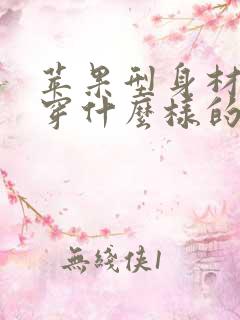 苹果型身材
穿什麼樣的
無綫俠1